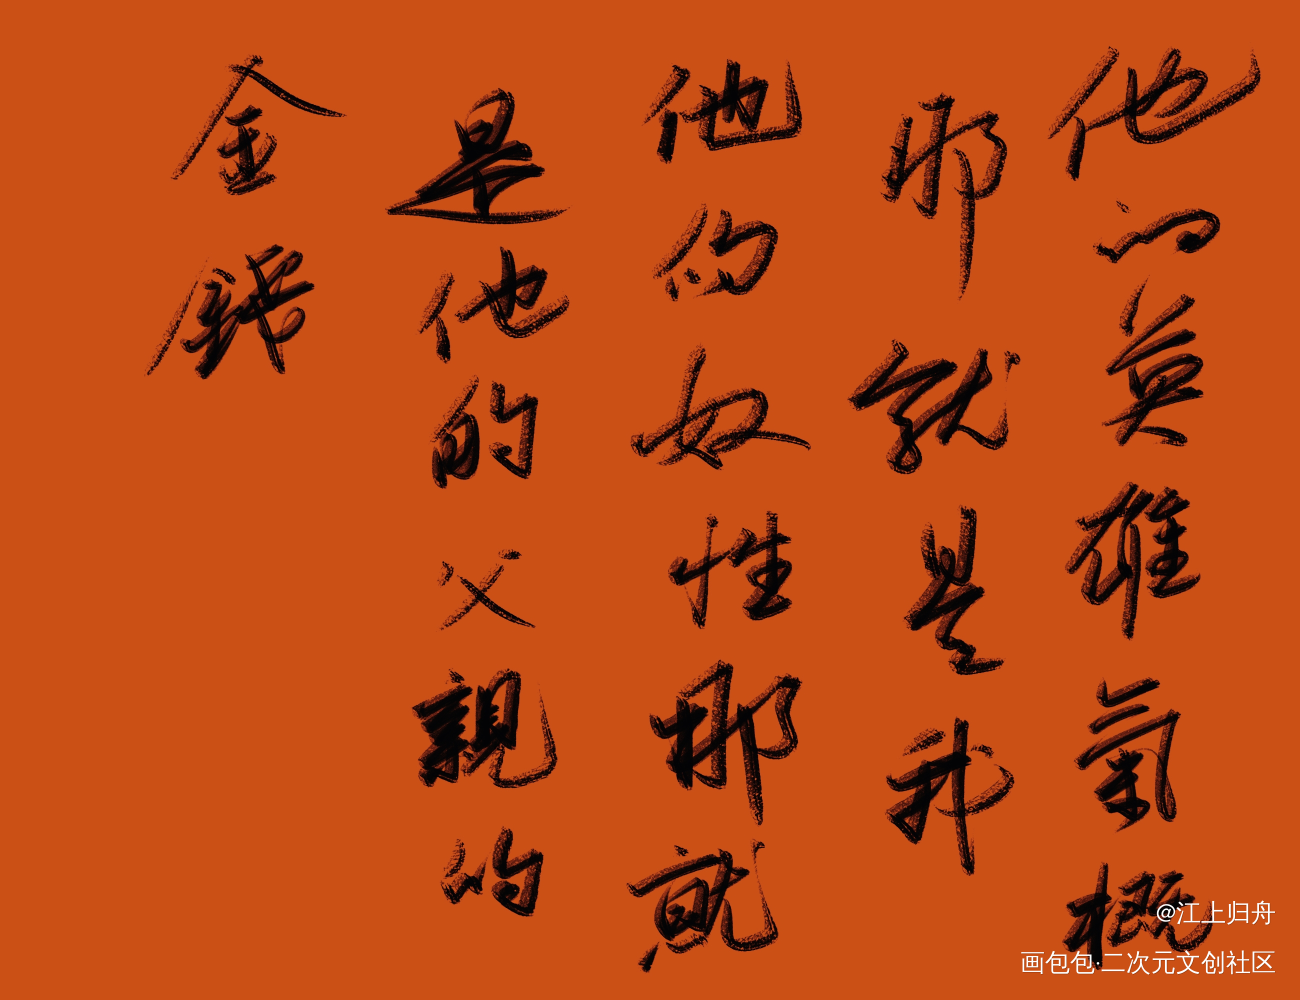 他的英雄氣概
那就是我
他的奴性那就
是他的父親的
金錢
@江上归舟
画包包·二次元文创社区